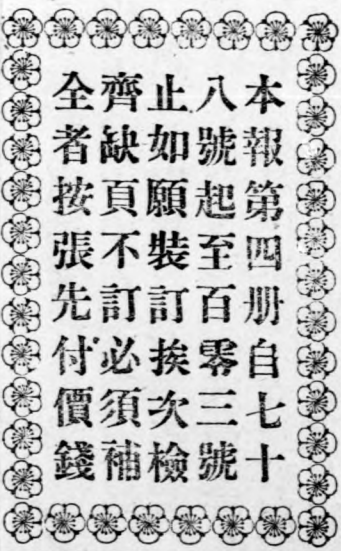 本報第四册自七十
八號起至百零三號
止如願裝訂挨次檢
齊缺頁不訂必須補
全者按張先付價錢